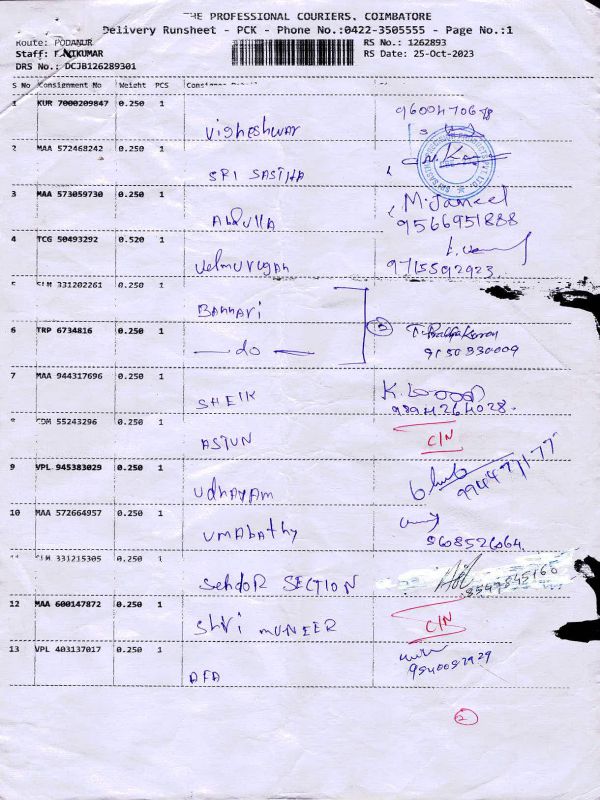 THE PROFESSIONAL COURIERS, COIMBATORE
Delivery Runsheet - PCK - Phone No.:0422-3505555 - Page No.:1
Route: PODANUR
RS No.: 1262893
Staff:
RS Date: 25-Oct-2023
DRS No.: DCJB126289301
S No Consignment No Weight PCS
1 KUR 7000209847 0.250 1
Vigheshwar
2 MAA 572468242 0.250 1
SRI SASTHA
3 MAA 573059730 0.250 1 M. Jameel
Abdulla 9566951888
4 TCG 50493292 0.520 1
Velmurugan 9715592923
5 SLM 331202261 0.250 1
BANNARI
6 TRP 6734816 0.250 1 T. Prabhakaran
do 9150930009
7 MAA 944317696 0.250 1
SHEIK 9894264028.
8 COM 55243296 0.250 1
ASTUN C/N
9 VPL 945383029 0.250 1
Udhayam
10 MAA 572664957 0.250 1
Umabathy
11 SLM 331215305 0.250 1
SECTION
12 MAA 600147872 0.250 1
Shri MUNEER C/N
13 VPL 403137017 0.250 1
AFA
2